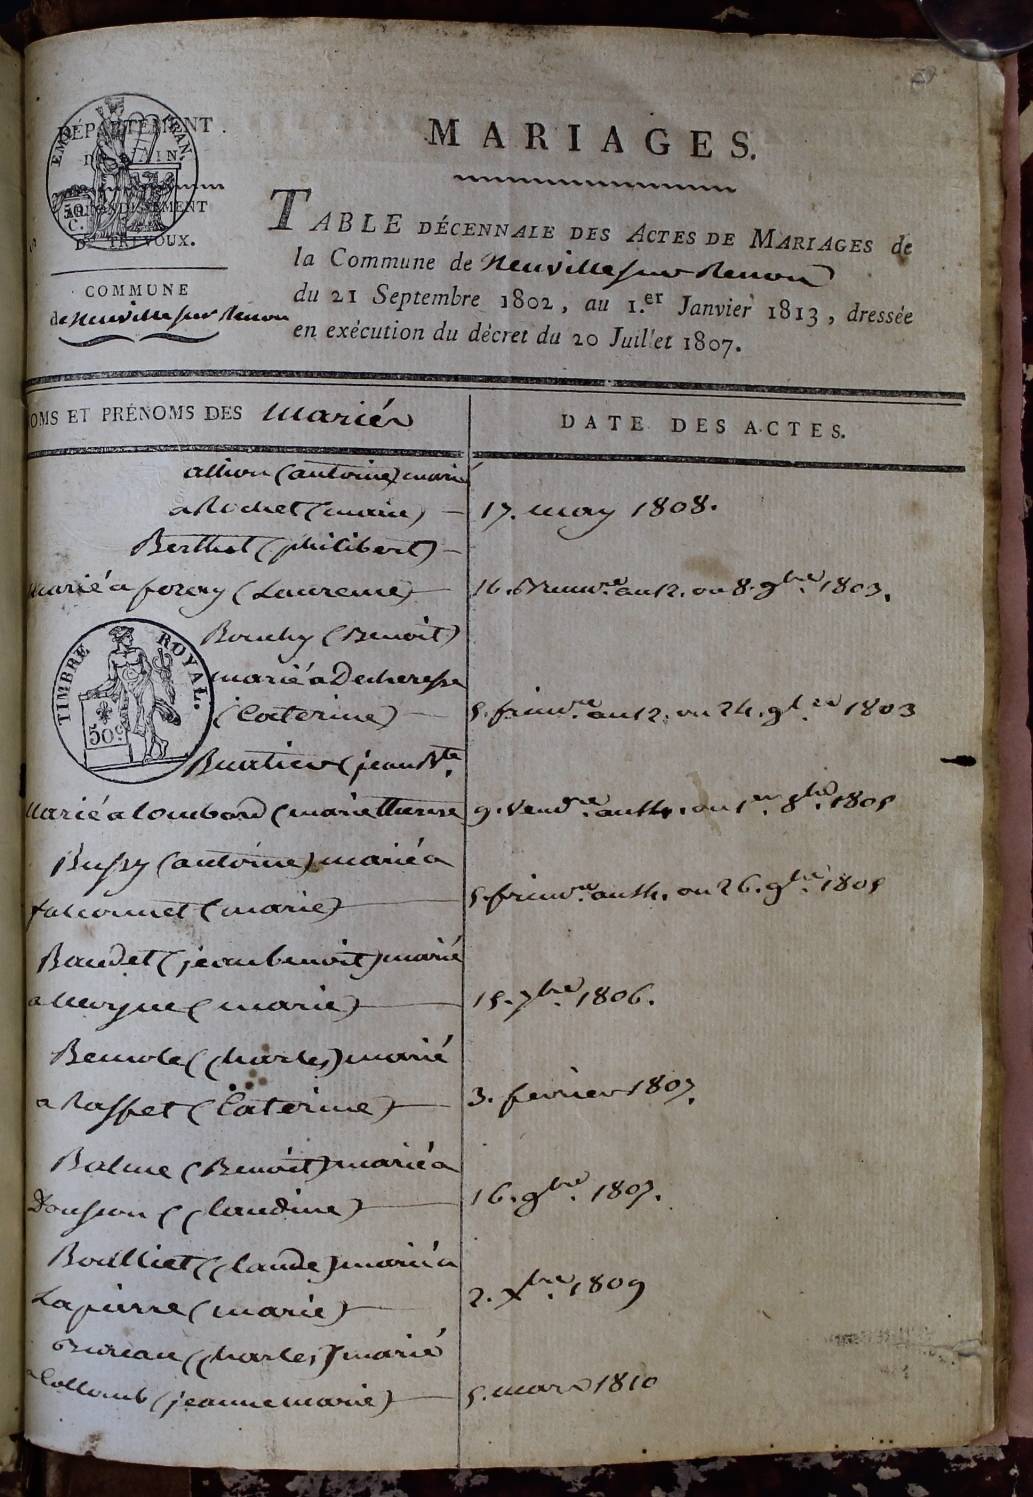 DÉPARTEMENT
DE L'AIN.
EMP. FRAN.
50
C.
ARRONDISSEMENT
DE TRÉVOUX.
COMMUNE
de Neuville sur Renon
MARIAGES.
TABLE DÉCENNALE DES ACTES DE MARIAGES de
la Commune de Neuville sur Renon
du 21 Septembre 1802, au 1.er Janvier 1813, dressée
en exécution du décret du 20 Juillet 1807.
NOMS ET PRÉNOMS DES Mariés
DATE DES ACTES.
(antoine) marié
a Rochet (marie) 17. may 1808.
Berthet (philibert)
Marié a forey (Laurence) 16. Brum.re an 12. ou 8. 9bre. 1803.
TIMBRE ROYAL.
50c.
(Benoit)
marié a Decheresse
(Caterine) 5. frim.re an 12. ou 24. 9bre 1803
(jean Bte.
Marié a lombard (marie Therese 9. Vend.re an 14. ou 1er 8bre. 1805
Bussy (antoine) marié a
falconnet (marie) 5. frim.re an 14. ou 26. 9bre. 1805
Baudet (jean benoit) marié
a (marie) 15. 7bre. 1806.
(charles) marié
a Raffet (Caterine) 3. fevrier 1807.
Balme (Benoit) marié a
(claudine) 16. 9bre. 1807.
Boulliet (claude) marié a
Lapierre (marie) 2. Xbre. 1809
Bureau (charles) marié
a Collomb (jeanne marie) 5. mars 1810